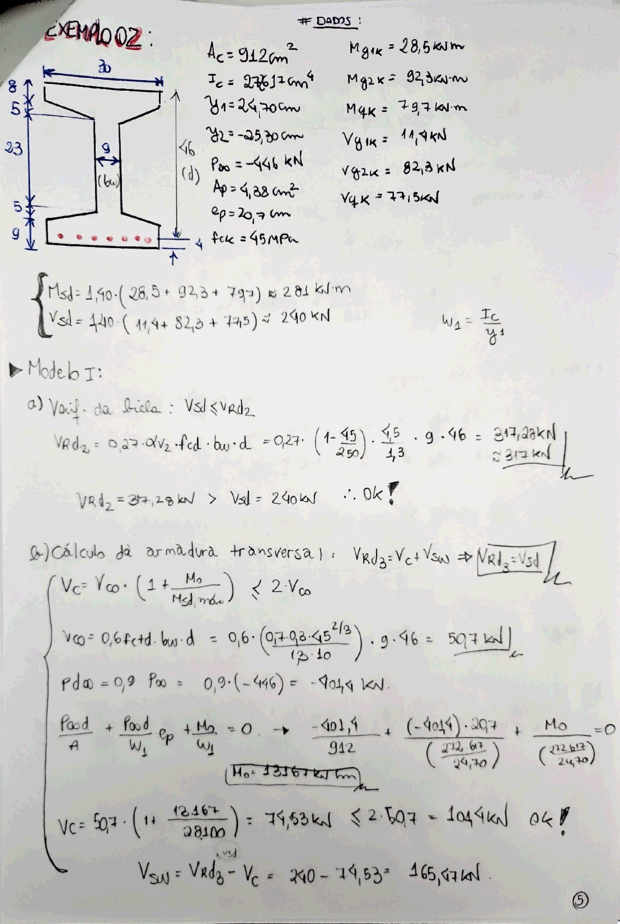 EXEMPLO 02:
# DADOS:
30
8
5
23
5
9
9
(bw)
46
(d)
4
Ac = 912 cm²
Ic = 272617 cm⁴
y1 = 24,70 cm
y2 = -25,30 cm
P∞ = -446 kN
Ap = 4,38 cm²
ep = 20,7 cm
fck = 45 MPa
Mg1k = 28,5 kN·m
Mg2k = 92,3 kN·m
Mqk = 79,7 kN·m
Vg1k = 11,4 kN
Vg2k = 82,3 kN
Vqk = 77,5 kN
Msd = 1,40·(28,5 + 92,3 + 79,7) ≈ 281 kN·m
Vsd = 1,40·(11,4 + 82,3 + 77,5) ≈ 240 kN
W1 = Ic/y1
▶ Modelo I:
a) Verif. da biela: Vsd ≤ VRd2
VRd2 = 0,27·αv2·fcd·bw·d = 0,27·(1-45/250)·4,5/1,3·9·46 = 317,28 kN
≈ 317 kN
VRd2 = 317,28 kN > Vsd = 240 kN ∴ Ok!
b) Cálculo da armadura transversal: VRd3 = Vc + Vsw ⇒ VRd3 = Vsd
Vc = Vco·(1 + Mo/Msd,máx) ≤ 2·Vco
Vco = 0,6 fctd·bw·d = 0,6·(0,7·0,3·45^2/3/1,3·10)·9·46 = 50,7 kN
Pd∞ = 0,9·P∞ = 0,9·(-446) = -401,4 kN.
P∞d/A + P∞d/W1 ep + Mo/W1 = 0 → -401,4/912 + (-401,4)·20,7/(272617/24,70) + Mo/(272617/24,70) = 0
Mo = 13167 kN·cm
Vc = 50,7·(1 + 13.167/28100) = 74,53 kN ≤ 2·50,7 = 101,4 kN ok!
Vsw = VRd3 - Vc = 240 - 74,53 = 165,47 kN.
5